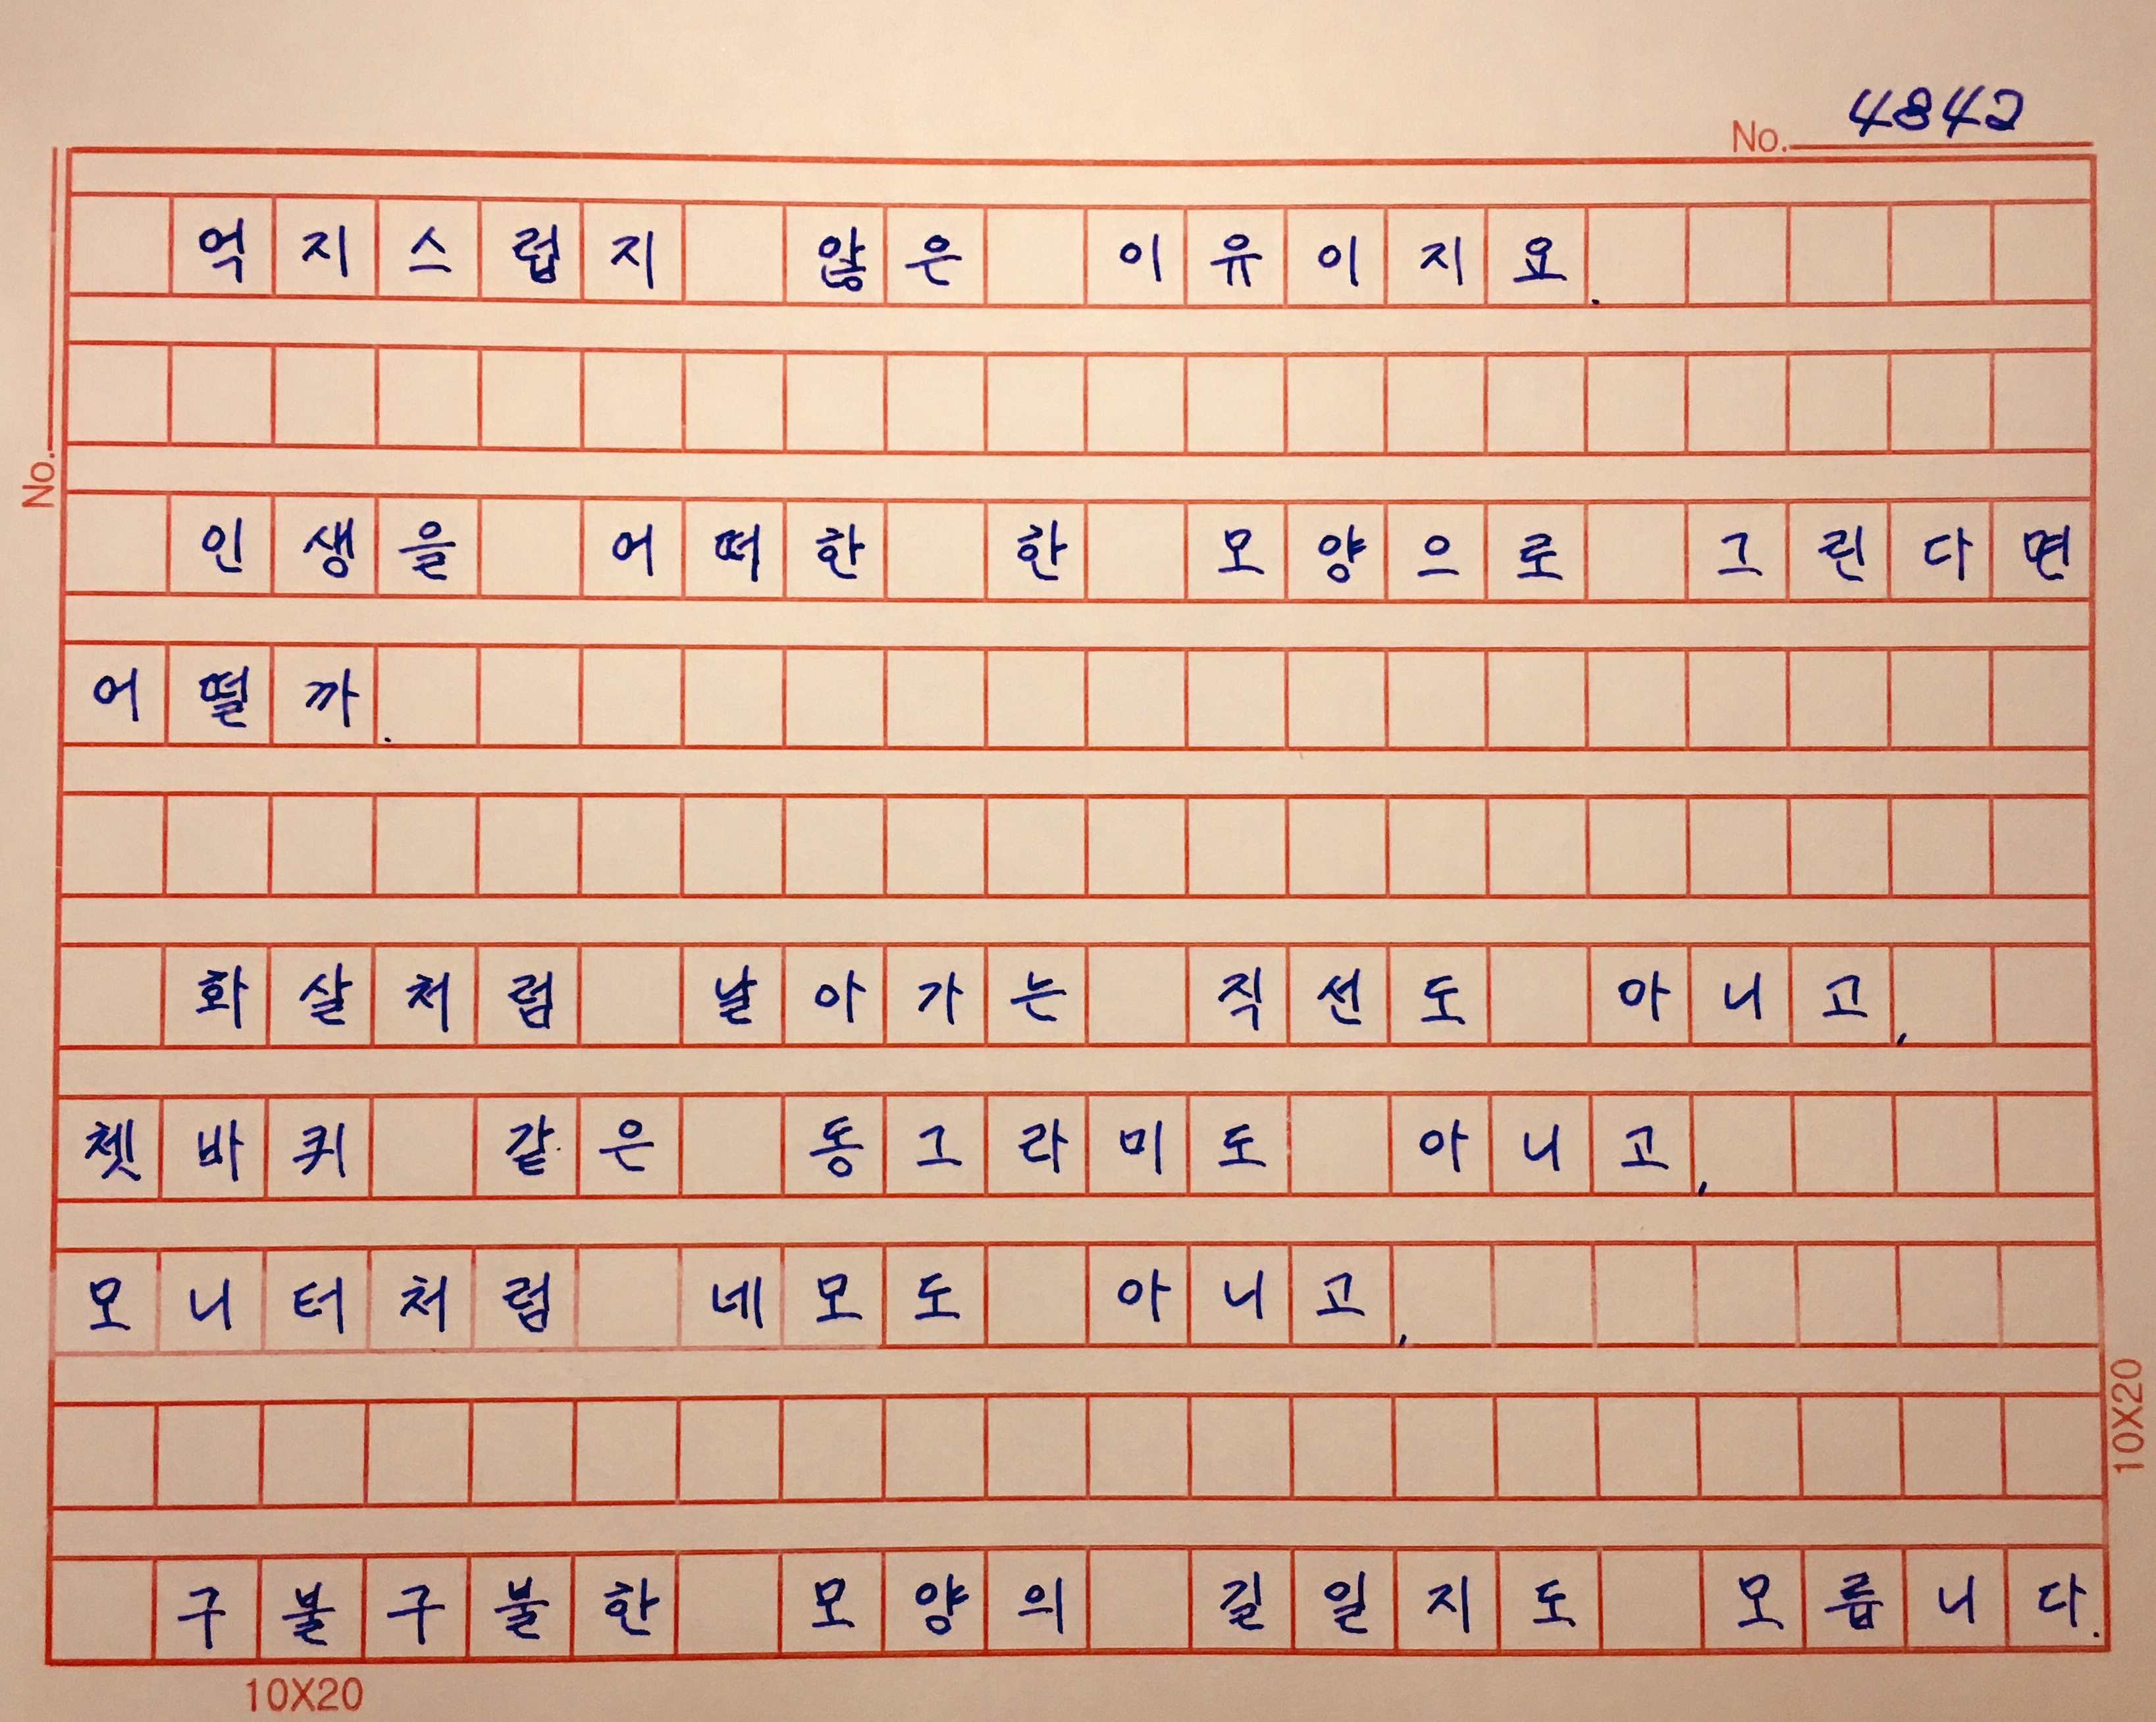 No. 4842
억지스럽지 않은 이유이지요.
No.
인생을 어떠한 한 모양으로 그린다면
어떨까.
화살처럼 날아가는 직선도 아니고,
쳇바퀴 같은 동그라미도 아니고,
모니터처럼 네모도 아니고,
10X20
구불구불한 모양의 길일지도 모릅니다.
10X20